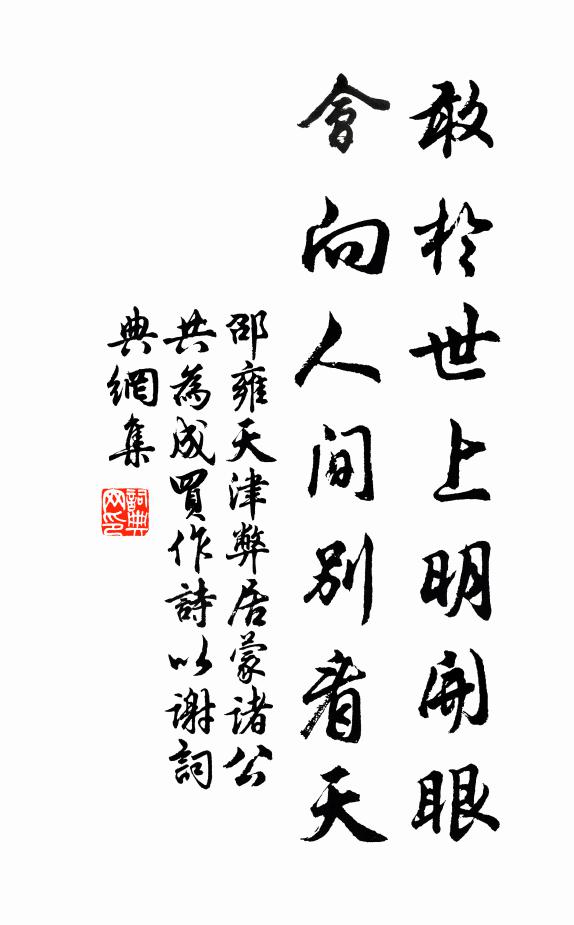 敢於世上明開眼
會向人間別看天
邵雍天津弊居蒙諸公
共為成買作詩以謝詞
典網集
詞典网印